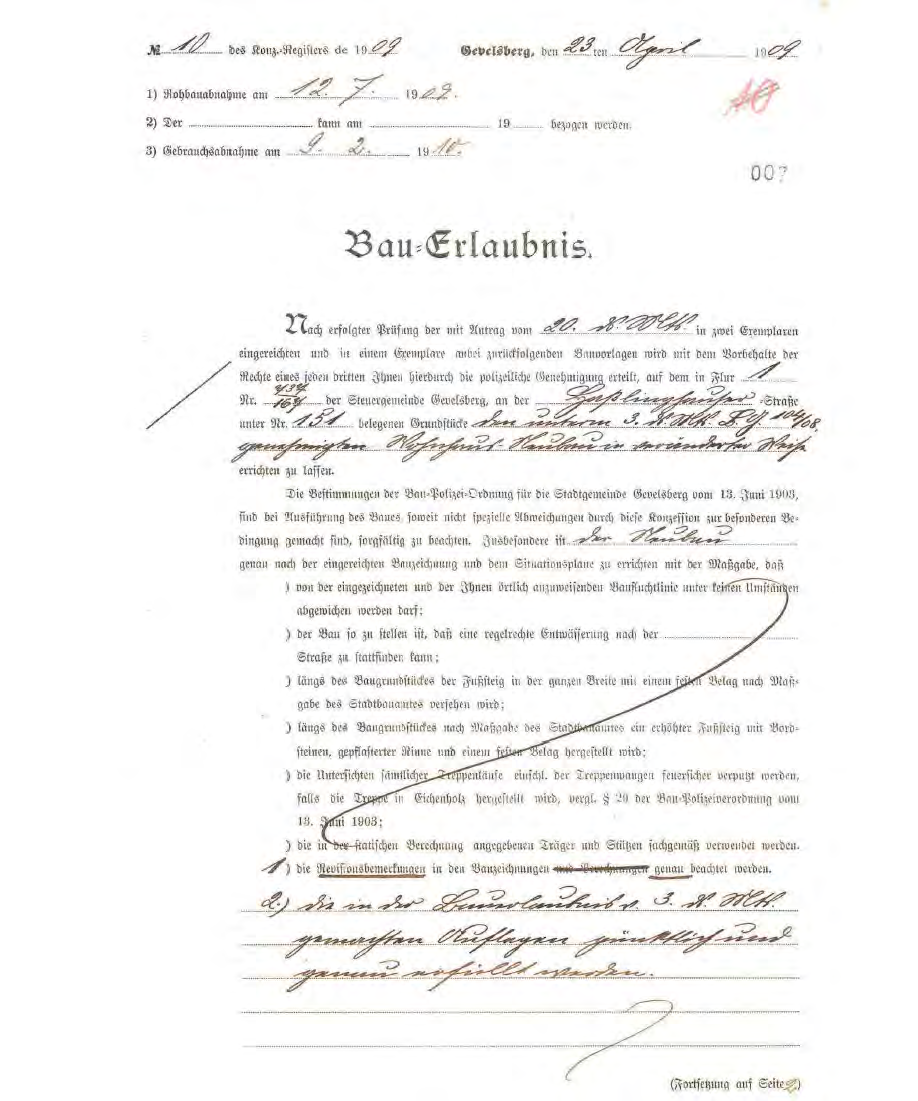 № 10 des Konz.-Registers de 1909 Gevelsberg, den 23ten April 1909
1) Rohbauabnahme am 12. 7. 1909.
10
2) Der kann am 19 bezogen werden.
3) Gebrauchsabnahme am 9. 2. 1910.
00?
Bau-Erlaubnis.
Nach erfolgter Prüfung der mit Antrag vom 20. ds. Mts. in zwei Exemplaren
eingereichten und in einem Exemplare anbei zurückfolgenden Bauvorlagen wird mit dem Vorbehalte der
Rechte eines jeden dritten Ihnen hierdurch die polizeiliche Genehmigung erteilt, auf dem in Flur 1
Nr. der Steuergemeinde Gevelsberg, an der Haßlinghauser -Straße
unter Nr. 151 belegenen Grundstücke den unterm 3. ds. Mts. 104/08
genehmigten Wohnhaus-Neubau in veränderter Weise
errichten zu lassen.
Die Bestimmungen der Bau-Polizei-Ordnung für die Stadtgemeinde Gevelsberg vom 13. Juni 1903,
sind bei Ausführung des Baues, soweit nicht spezielle Abweichungen durch diese Konzession zur besonderen Be-
dingung gemacht sind, sorgfältig zu beachten. Insbesondere ist der Neubau
genau nach der eingereichten Bauzeichnung und dem Situationsplane zu errichten mit der Maßgabe, daß
) von der eingezeichneten und der Ihnen örtlich anzuweisenden Baufluchtlinie unter keinen Umständen
abgewichen werden darf;
) der Bau so zu stellen ist, daß eine regelrechte Entwässerung nach der
Straße zu stattfinden kann;
) längs des Baugrundstückes der Fußsteig in der ganzen Breite mit einem festen Belag nach Maß-
gabe des Stadtbauamtes versehen wird;
) längs des Baugrundstückes nach Maßgabe des Stadtbauamtes ein erhöhter Fußsteig mit Bord-
steinen, gepflasterter Rinne und einem festen Belag hergestellt wird;
) die Untersichten sämtlicher Treppenläufe einschl. der Treppenwangen feuersicher verputzt werden,
falls die Treppe in Eichenholz hergestellt wird, vergl. § 29 der Bau-Polizeiverordnung vom
13. Juni 1903;
) die in der statischen Berechnung angegebenen Träger und Stützen sachgemäß verwendet werden.
1) die Revisionsbemerkungen in den Bauzeichnungen und Berechnungen genau beachtet werden.
2.) die in der Bauerlaubnis v. 3. ds. Mts.
gemachten Auflagen pünktlich und
genau erfüllt werden.
(Fortsetzung auf Seite 2)